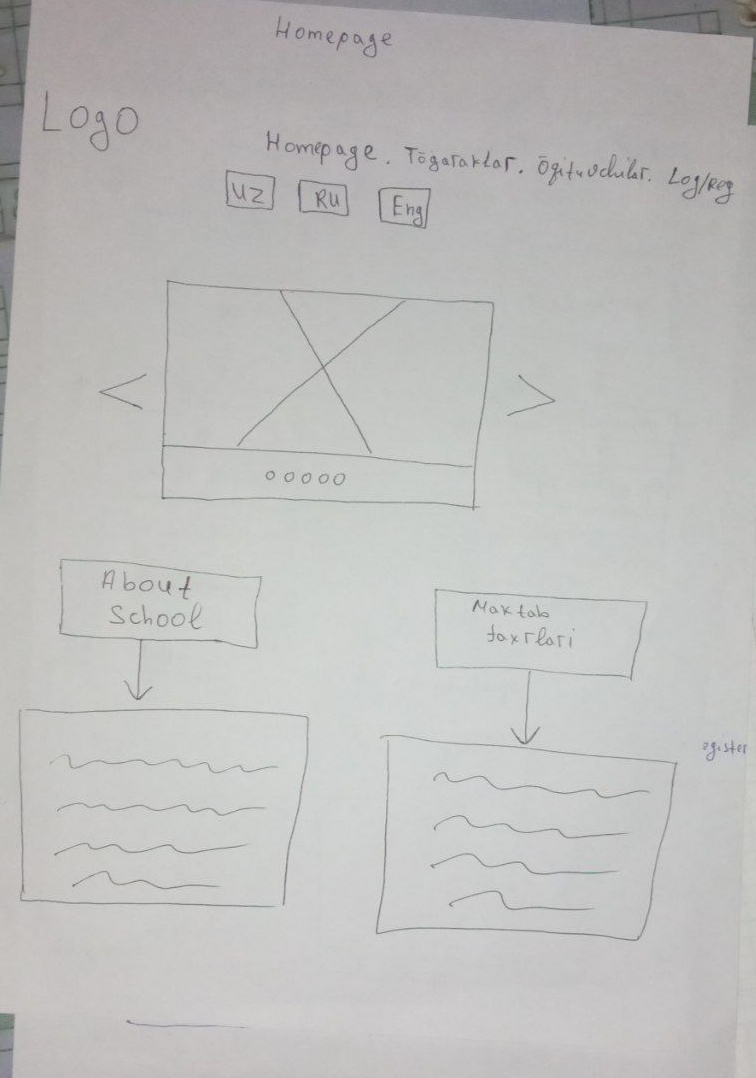 Homepage
Logo
Homepage. Tōgaraklar. Ōgituvchilar. Log/Reg
UZ RU Eng
< >
ooooo
About
School
Maktab
egister